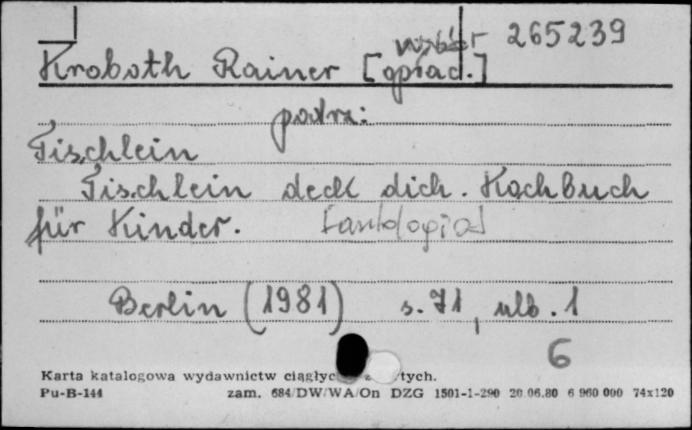 wybór 265239
Kroboth Rainer [oprac.]
patrz:
Tischlein
Tischlein deck dich. Kochbuch
für Kinder. [antologia]
Berlin (1981) s. 71, ulb. 1
6
Karta katalogowa wydawnictw ciągłyc tych.
Pu-B-144 zam. 684/DW/WA/On DZG 1501-1-290 20.06.80 6 960 000 74x120